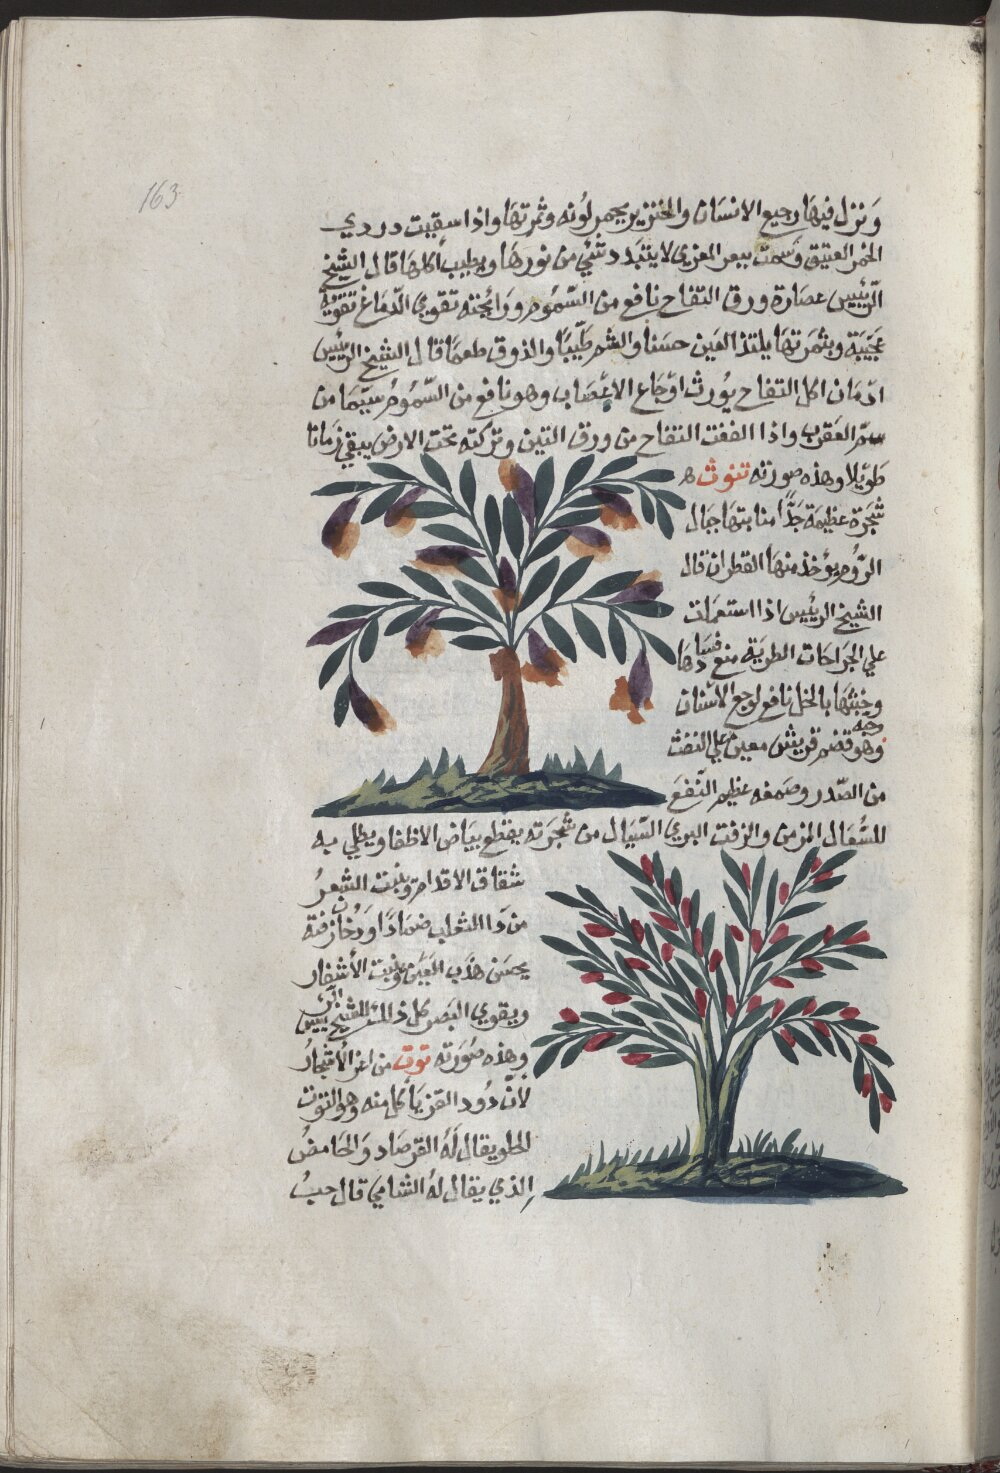 163
ونزل فيها رجيع الانسان والخنزير يحمر لونه وثمرتها واذا سقيت دردي
الخمر العتيق وسمت ببعر المعزي لا يتبدد شئي من نورها ويطيب اكلها قال الشيخ
الرئيس عصارة ورق التفاح نافع من السموم ورائحته تقوي الدماغ تقوية
عجيبة وبثمرتها يلتذ العين حسنا والشم طيبا والذوق طعما قال الشيخ الرئيس
ادمان اكل التفاح يورث اوجاع الاعصاب وهو نافع من السموم سيما من
سم العقرب واذا لففت التفاح من ورق التين وتركته تحت الارض يبقي زمانا
طويلا وهذه صورته تنوث
شجرة عظيمة جدا منابتها جبال
الروم يؤخذ منها القطران قال
الشيخ الرئيس اذا استعملت
علي الجراحات الطرية منع فسادها
وخبثها بالخل نافع لوجع الاسنان
وهو قضم قريش معين علي النفث
من الصدر وصمغه عظيم النفع
للسعال المزمن والزفت البري السيال من شجرته يقطع بياض الاظفار ويطلي به
شقاق الاقدام وينبت الشعر
من دا الثعلب ضمادا ودخان زفته
يحسن هذب العين وينبت الأشفار
ويقوي البصر كل ذا للشيخ الرئيس
وهذه صورته توت من اعز الاشجار
لان دود القز يأكل منه وهو التوت
الحلو يقال له الفرصاد والحامض
الذي يقال له الشامي قال حب